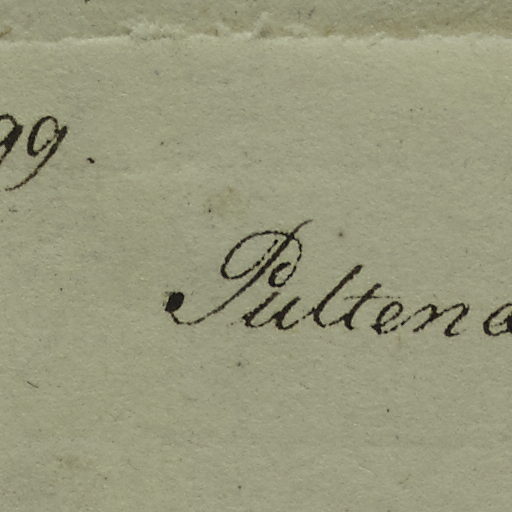 99.
Pultena